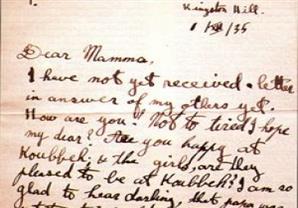 Kingston Hill.
35
Dear Mamma,
I have not yet received a letter
in answer of my others yet.
How are you? Not to tired I hope
my dear? Are you happy at
Koubbeh; & the girls, are they
pleased to be at Koubbeh? I am so
glad to hear darling, that papa was